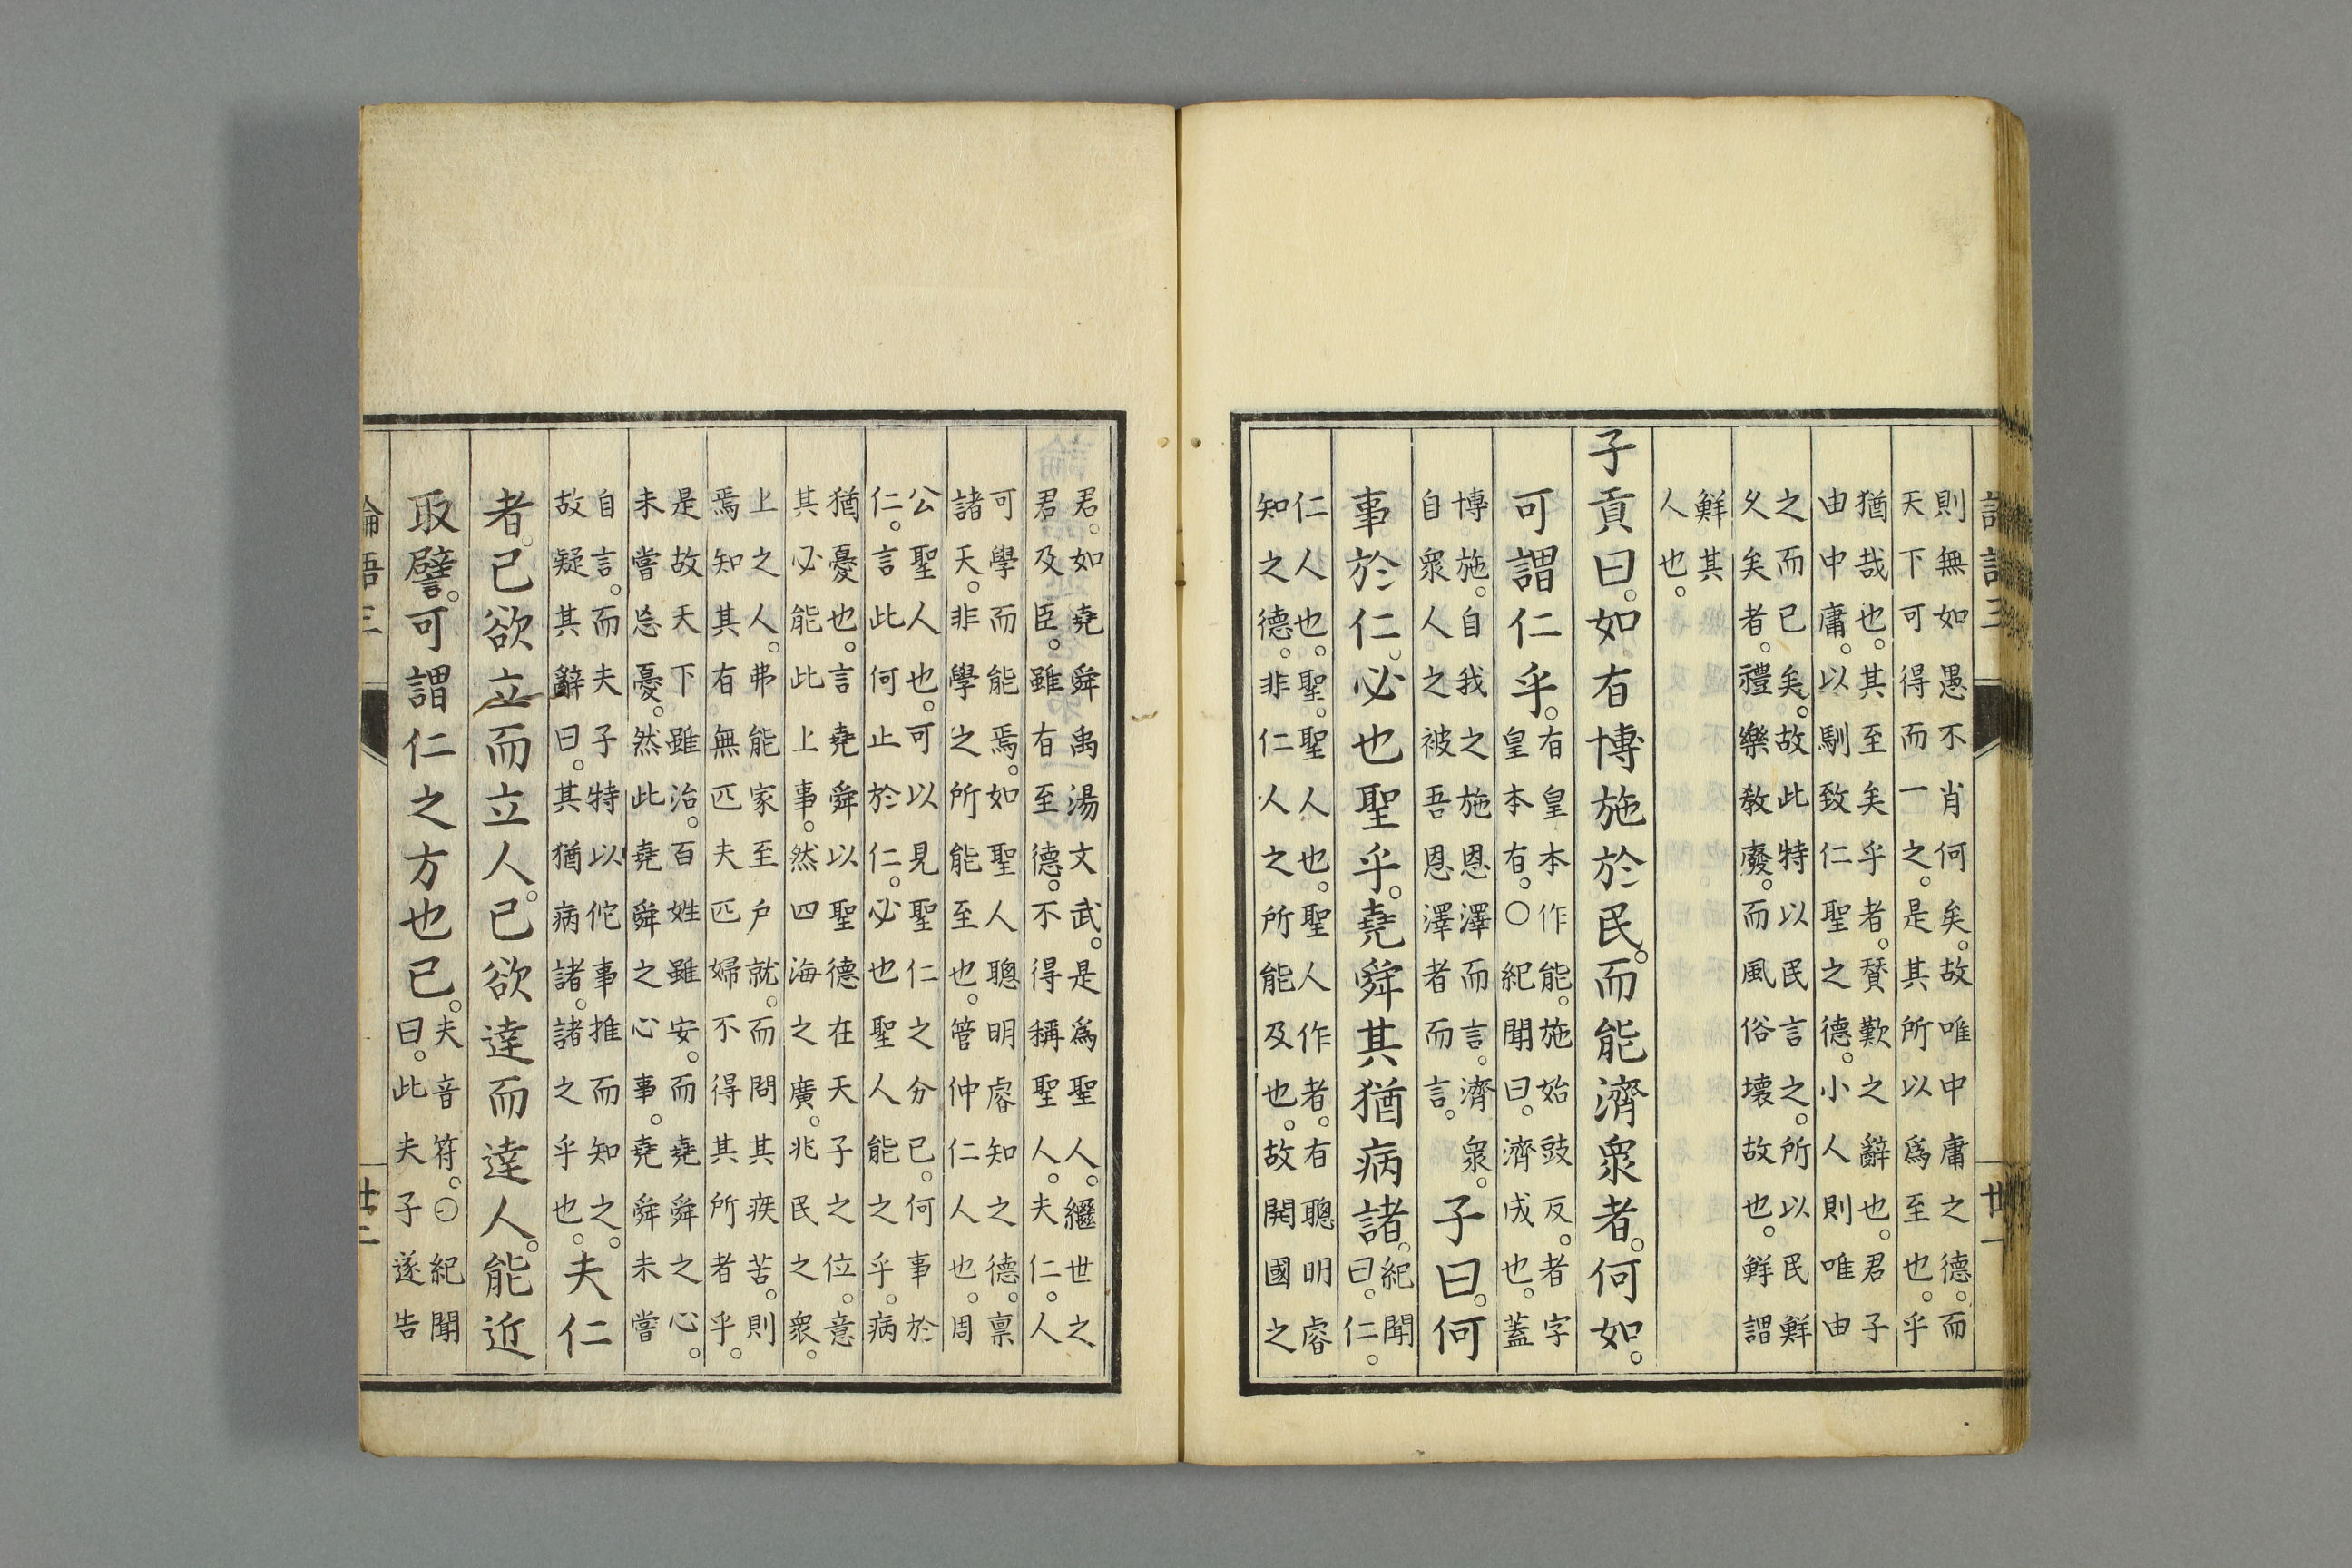 則無如愚不肖何矣。故唯中庸之德。而
天下可得而一之。是其所以爲至也。乎
猶哉也。其至矣乎者。賛歎之辭也。君子
由中庸。以馴致仁聖之德。小人則唯由
之而已矣。故此特以民言之。所以民鮮
久矣者。禮樂敎廢。而風俗壊故也。鮮謂
鮮其
人也。
子貢曰。如有博施於民。而能濟衆者。何如。
可謂仁乎。
有皇本作能。施始豉反。者字
皇本有。○紀聞曰。濟成也。蓋
博施。自我之施恩澤而言。濟衆。
自衆人之被吾恩澤者而言。
子曰。何
事於仁。必也聖乎。堯舜其猶病諸。
紀聞
曰。仁。
仁人也。聖。聖人也。聖人作者。有聰明睿
知之德。非仁人之所能及也。故開國之
君。如堯舜禹湯文武。是爲聖人。繼世之
君及臣。雖有至德。不得稱聖人。夫仁。人
可學而能焉。如聖人聰明睿知之德。稟
諸天。非學之所能至也。管仲仁人也。周
公聖人也。可以見聖仁之分已。何事於
仁。言此何止於仁。必也聖人能之乎。病
猶憂也。言堯舜以聖德在天子之位。意
其必能此上事。然四海之廣。兆民之衆。
上之人。弗能家至戶就。而問其疾苦。則
焉知其有無匹夫匹婦不得其所者乎。
是故天下雖治。百姓雖安。而堯舜之心。
未嘗忘憂。然此堯舜之心事。堯舜未嘗
自言。而夫子特以佗事推而知之。
故疑其辭曰。其猶病諸。諸之乎也。
夫仁
者。已欲立而立人。已欲達而達人。能近
取譬。可謂仁之方也已。
夫音符。○紀聞
曰。此夫子遂告
論語三
廿一
論語三
廿二